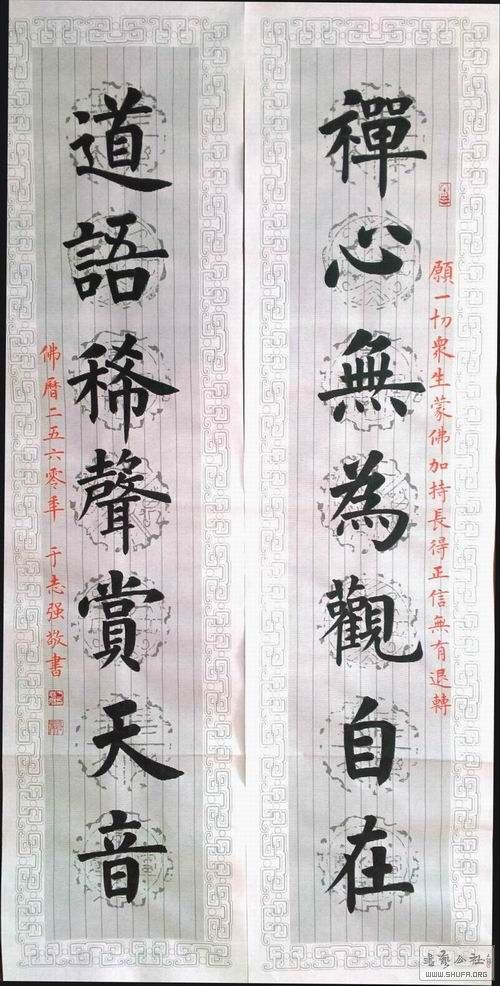 願一切衆生蒙佛加持長得正信無有退轉
禪心無為觀自在
道語稀聲賞天音
佛曆二五六零年 于志强敬書
WWW.SHUFA.ORG